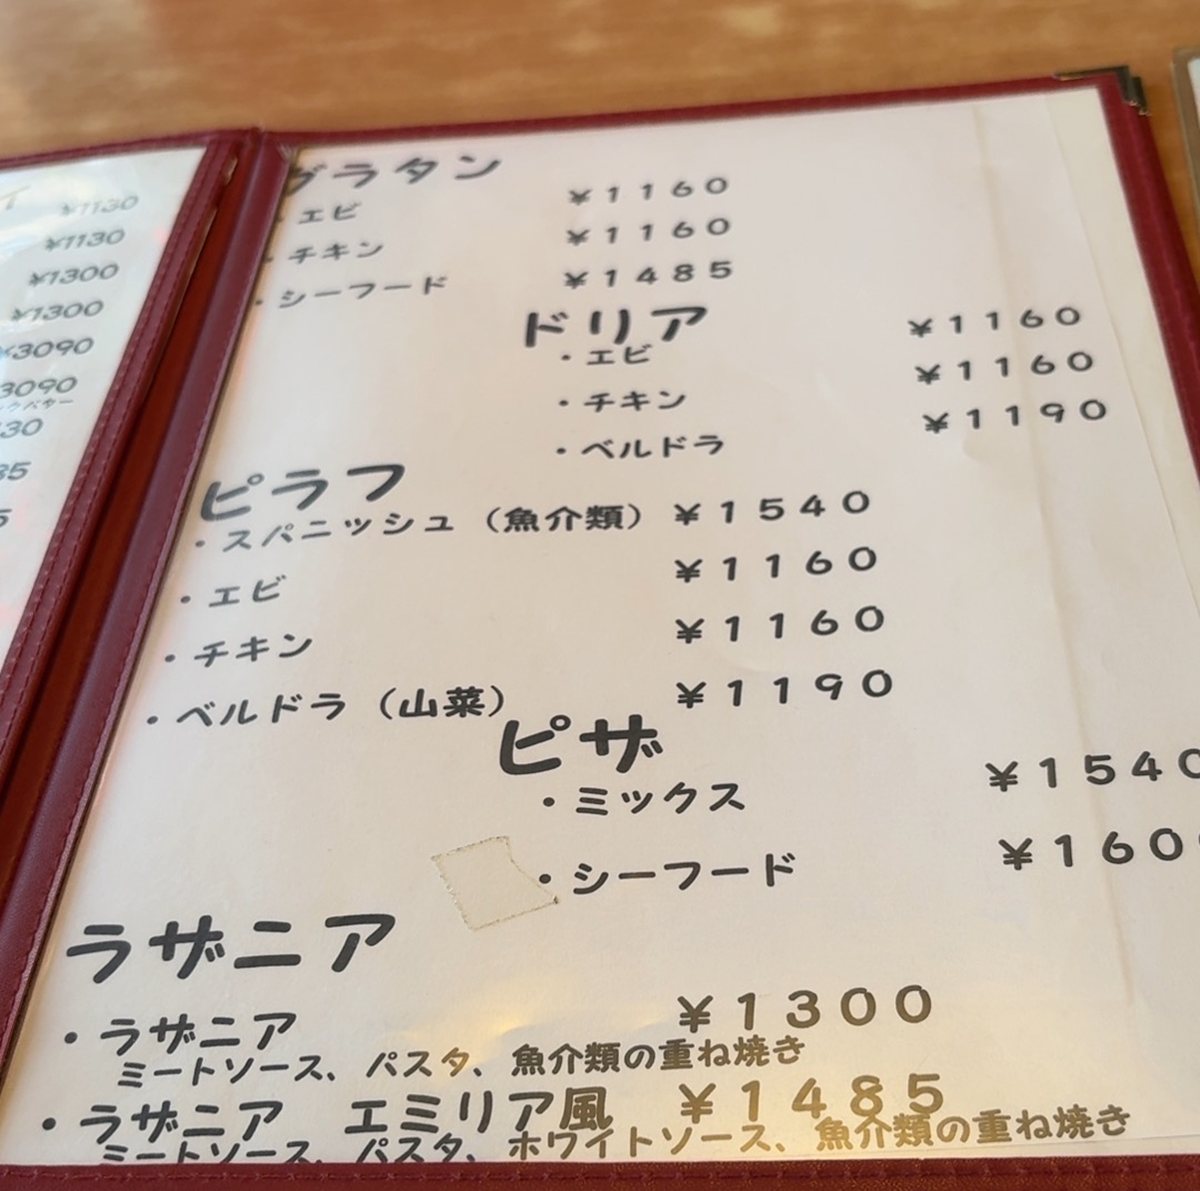 ¥1130
¥1130
¥1300
¥1300
¥3090
3090
30
35
5
グラタン
・エビ ¥1160
・チキン ¥1160
・シーフード ¥1485
ドリア
・エビ ¥1160
・チキン ¥1160
・ベルドラ ¥1190
ピラフ
・スパニッシュ（魚介類） ¥1540
・エビ ¥1160
・チキン ¥1160
・ベルドラ（山菜） ¥1190
ピザ
・ミックス ¥1540
・シーフード ¥160
ラザニア
・ラザニア ¥1300
ミートソース、パスタ、魚介類の重ね焼き
・ラザニア　エミリア風 ¥1485
ミートソース、パスタ、ホワイトソース、魚介類の重ね焼き